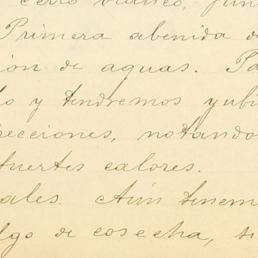 cerro blanco, fun
Primera abenida d
ión de aguas. Pa
lo y tendremos yubi
recciones, notando
fuertes calores.
ales. Aún tenem
lgo de cosecha, si